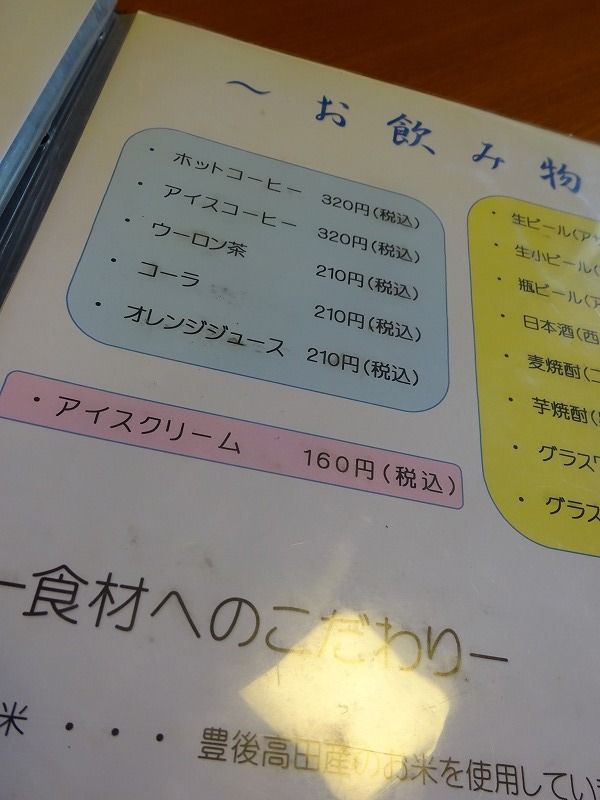 ～お飲み物
・ホットコーヒー 320円(税込)
・アイスコーヒー 320円(税込)
・ウーロン茶 210円(税込)
・コーラ 210円(税込)
・オレンジジュース 210円(税込)
・アイスクリーム 160円(税込)
・生ビール(ア
・生小ビール(
・瓶ビール(ア
・日本酒(西
・麦焼酎(
・芋焼酎(
・グラス
・グラス
ー食材へのこだわりー
米・・・豊後高田産のお米を使用してい